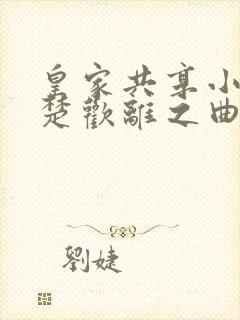 皇家共享小
楚歡離之曲
劉婕